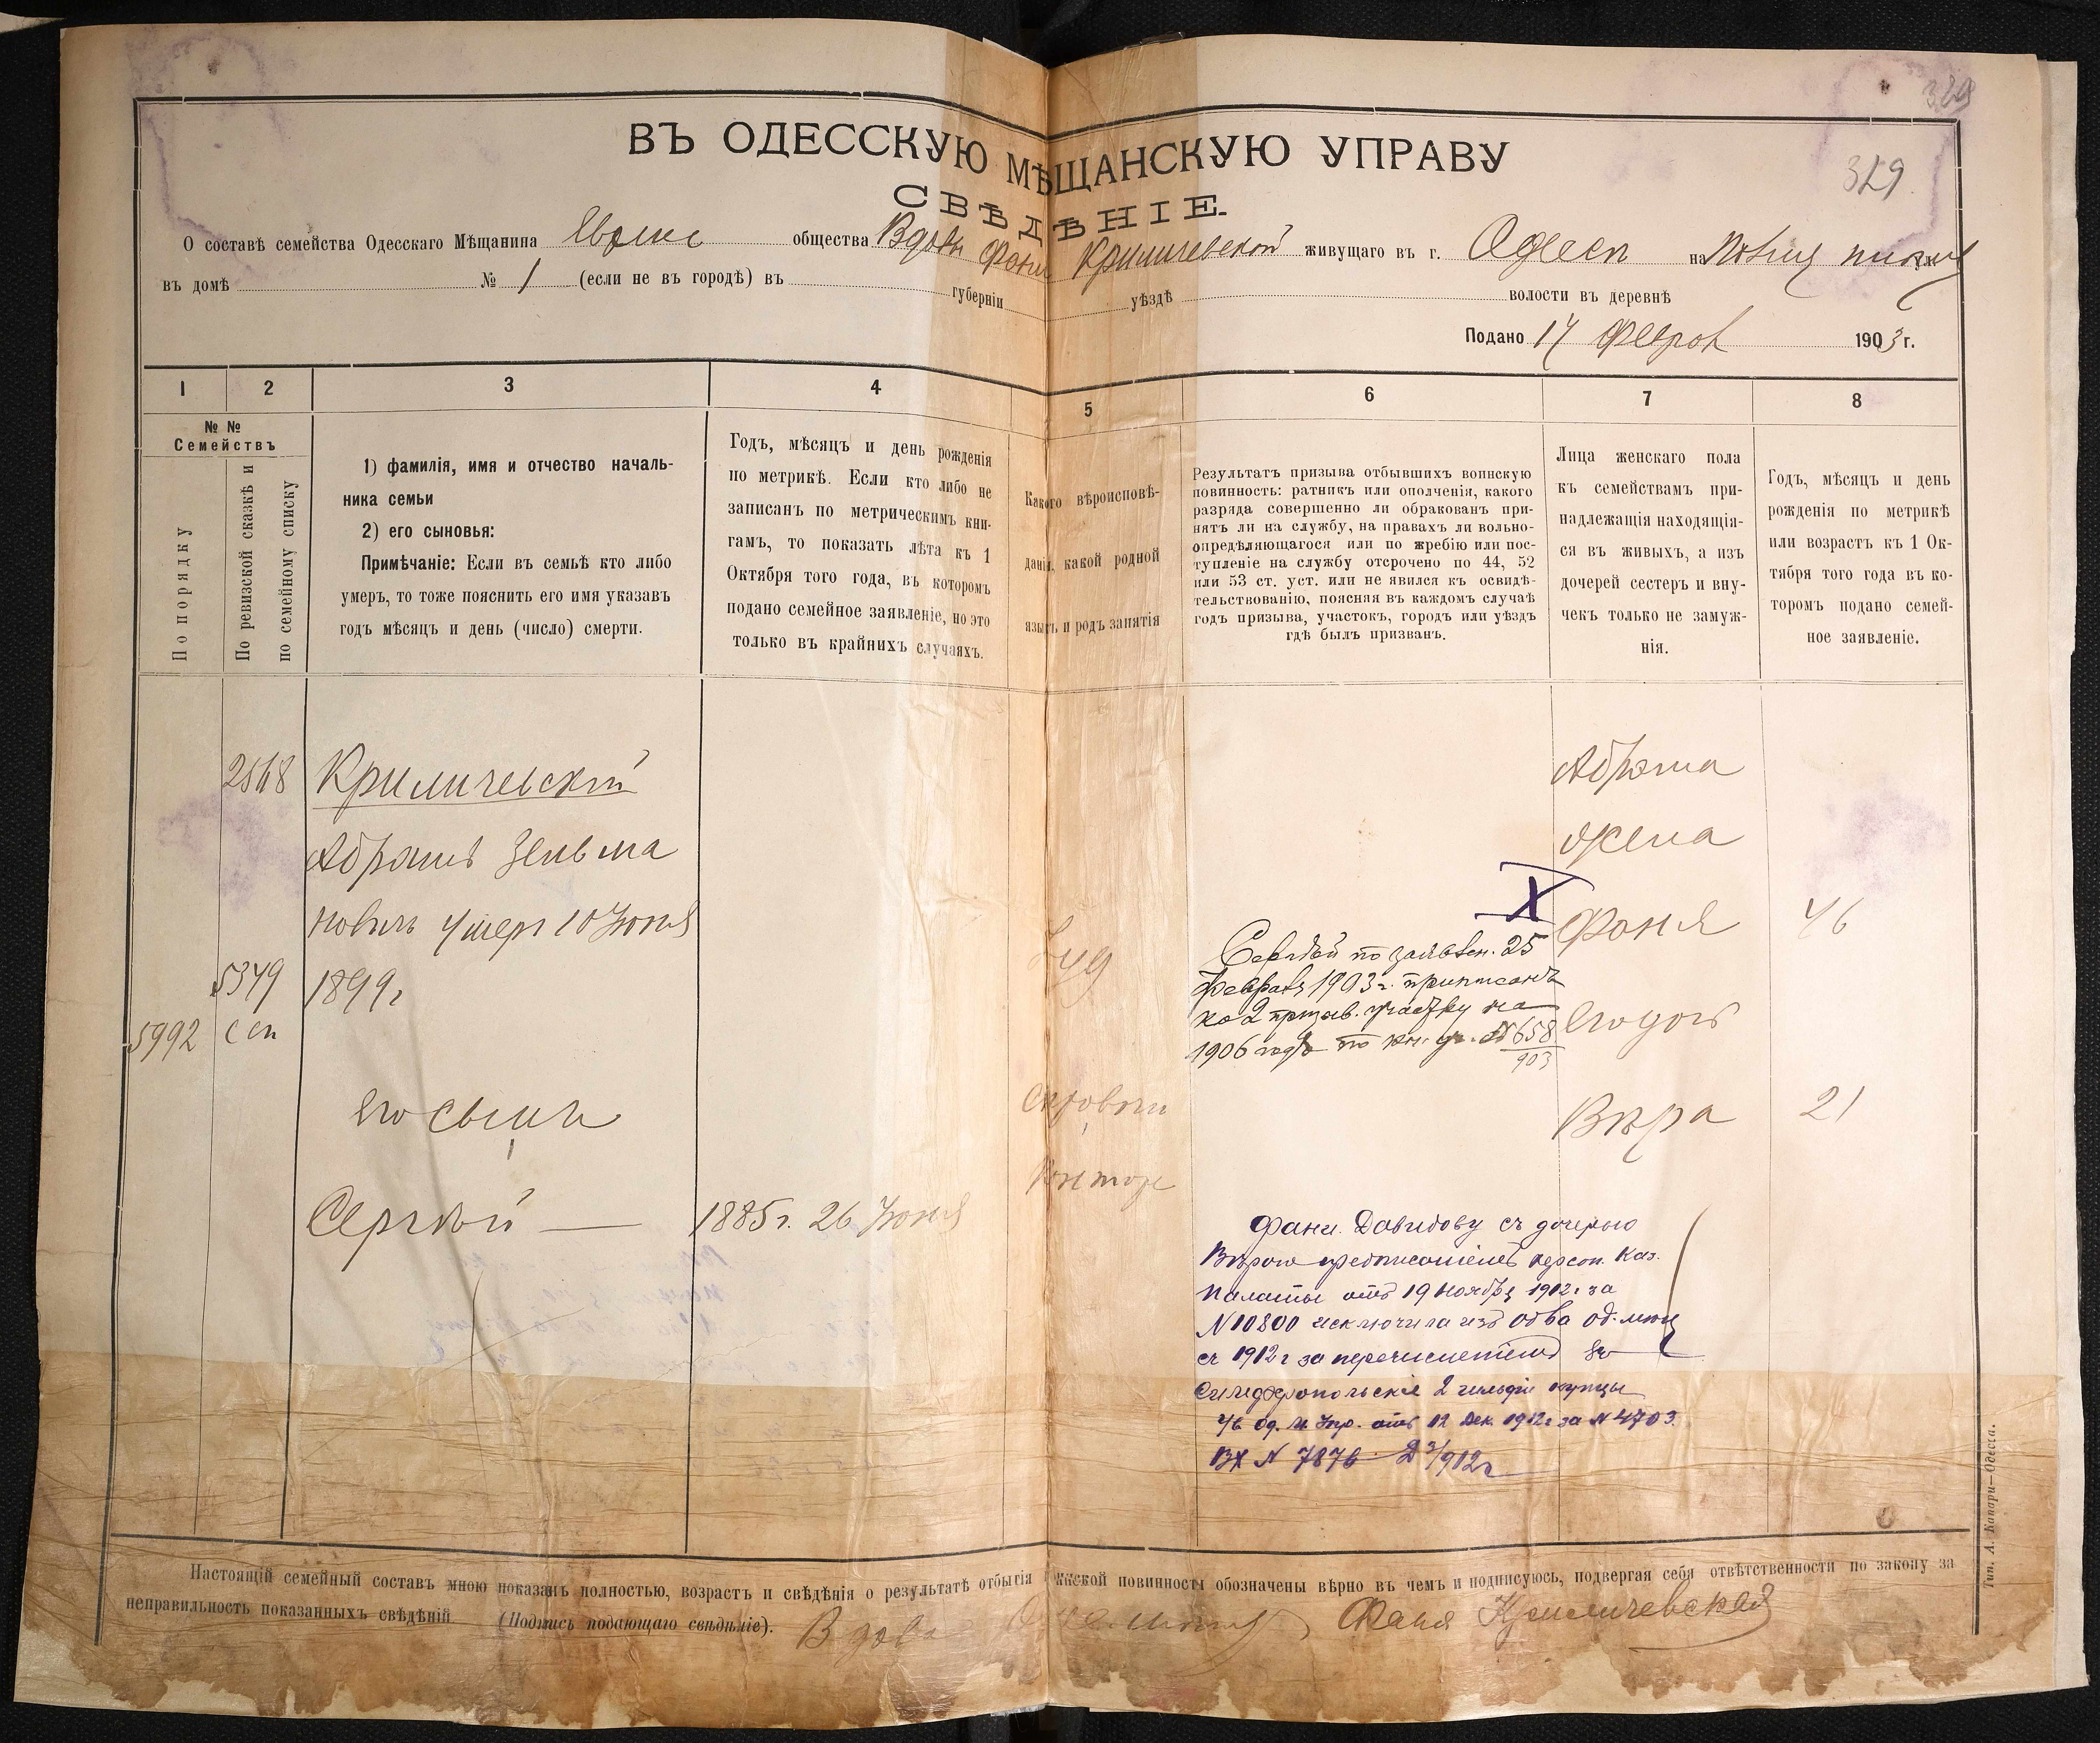 329
329
ВЪ ОДЕССКУЮ МѢЩАНСКУЮ УПРАВУ
СВѢДѢНІЕ.
О составѣ семейства Одесскаго Мѣщанина общества Вдовы Фани Криличевской живущаго въ г. Одессѣ на
въ домѣ № 1 (если не въ городѣ) въ губерніи уѣздѣ волости въ деревнѣ
Подано 17 Феврал 1903 г.
1 2 3 4 5 6 7 8
№ №
Семействъ
По порядку
По ревизской сказкѣ и
по семейному списку
1) фамилія, имя и отчество началь-
ника семьи
2) его сыновья:
Примѣчаніе: Если въ семьѣ кто либо
умеръ, то тоже пояснить его имя указавъ
годъ мѣсяцъ и день (число) смерти.
Годъ, мѣсяцъ и день рожденія
по метрикѣ. Если кто либо не
записанъ по метрическимъ кни-
гамъ, то показать лѣта къ 1
Октября того года, въ которомъ
подано семейное заявленіе, но это
только въ крайнихъ случаяхъ.
Какого вѣроисповѣ-
данія, какой родной
языкъ и родъ занятія
Результатъ призыва отбывшихъ воинскую
повинность: ратникъ или ополченія, какого
разряда совершенно ли обракованъ при-
нятъ ли на службу, на правахъ ли вольно-
опредѣляющагося или по жребію или пос-
тупленіе на службу отсрочено по 44, 52
или 53 ст. уст. или не явился къ освидѣ-
тельствованію, поясняя въ каждомъ случаѣ
годъ призыва, участокъ, городъ или уѣздъ
гдѣ былъ призванъ.
Лица женскаго пола
къ семействамъ при-
надлежащія находящія-
ся въ живыхъ, а изъ
дочерей сестеръ и вну-
чекъ только не замуж-
нія.
Годъ, мѣсяцъ и день
рожденія по метрикѣ
или возрастъ къ 1 Ок-
тября того года въ ко-
торомъ подано семей-
ное заявленіе.
2568
Криличевскій
Абрамъ Зельма
новичъ умеръ 10 Іюня
5349 1899 г
5992
его сынъ
Сергѣй — 1885 г. 26 Іюня
Іуд
Х
Сергѣй по заявлен. 25
февраля 1903 г. приписанъ
ко 2 призыв. участку на
1906 годъ по кн. № 658
903
Абрама
жена
Фаня 46
его доч
Вѣра 21
Фаню Давидову съ дочерью
Вѣрою предписаніемъ Херсон. Каз.
Палаты отъ 19 ноября 1912 г за
N 10800 исключила изъ об ва од. мѣщ
съ 1912 г за перечисленіемъ въ
Симферопольскіе 2 гильдіи купцы
отъ 12 Дек 1912 г за N 4703.
ВХ N 7876 Д 3/912 г
Настоящій семейный составъ мною показанъ полностью, возрастъ и свѣдѣнія о результатѣ отбытія воинской повинности обозначены вѣрно въ чемъ и подписуюсь, подвергая себя отвѣтственности по закону за
неправильность показанныхъ свѣдѣній (Подпись подающаго свѣдѣніе). Вдова Фаня Криличевская
Тип. А. Копари—Одесса.